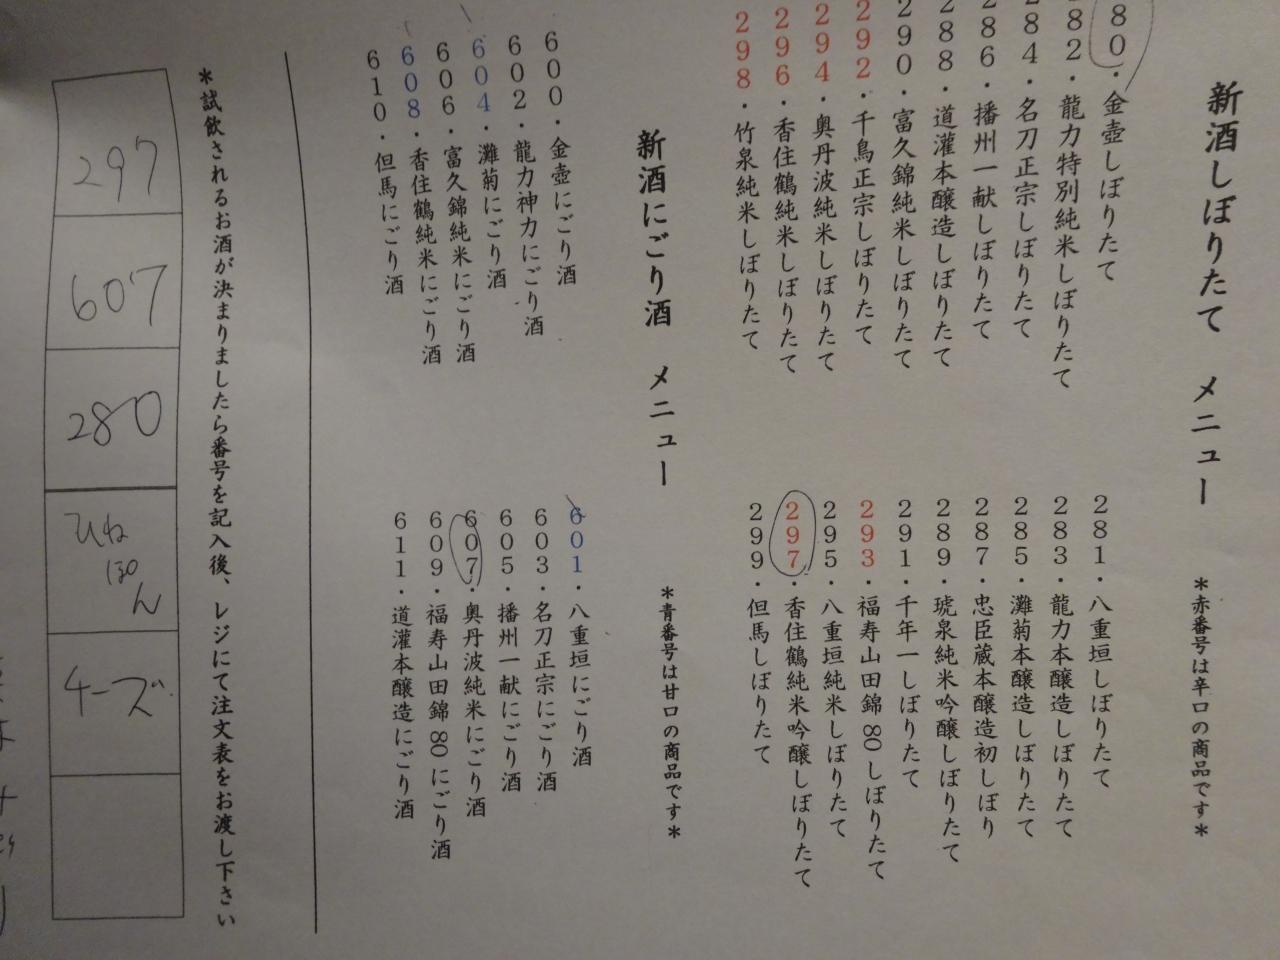 新酒しぼりたて メニュー
*赤番号は辛口の商品です*
80・金壺しぼりたて
282・龍力特別純米しぼりたて
284・名刀正宗しぼりたて
286・播州一献しぼりたて
288・道灌本醸造しぼりたて
290・富久錦純米しぼりたて
292・千鳥正宗しぼりたて
294・奥丹波純米しぼりたて
296・香住鶴純米しぼりたて
298・竹泉純米しぼりたて
281・八重垣しぼりたて
283・龍力本醸造しぼりたて
285・灘菊本醸造しぼりたて
287・忠臣蔵本醸造初しぼり
289・琥泉純米吟醸しぼりたて
291・千年一しぼりたて
293・福寿山田錦80しぼりたて
295・八重垣純米しぼりたて
297・香住鶴純米吟醸しぼりたて
299・但馬しぼりたて
新酒にごり酒 メニュー
*青番号は甘口の商品です*
600・金壺にごり酒
602・龍力神力にごり酒
604・灘菊にごり酒
606・富久錦純米にごり酒
608・香住鶴純米にごり酒
610・但馬にごり酒
601・八重垣にごり酒
603・名刀正宗にごり酒
605・播州一献にごり酒
607・奥丹波純米にごり酒
609・福寿山田錦80にごり酒
611・道灌本醸造にごり酒
*試飲されるお酒が決まりましたら番号を記入後、レジにて注文表をお渡し下さい
297
607
280
ひね
ぽん
チーズ